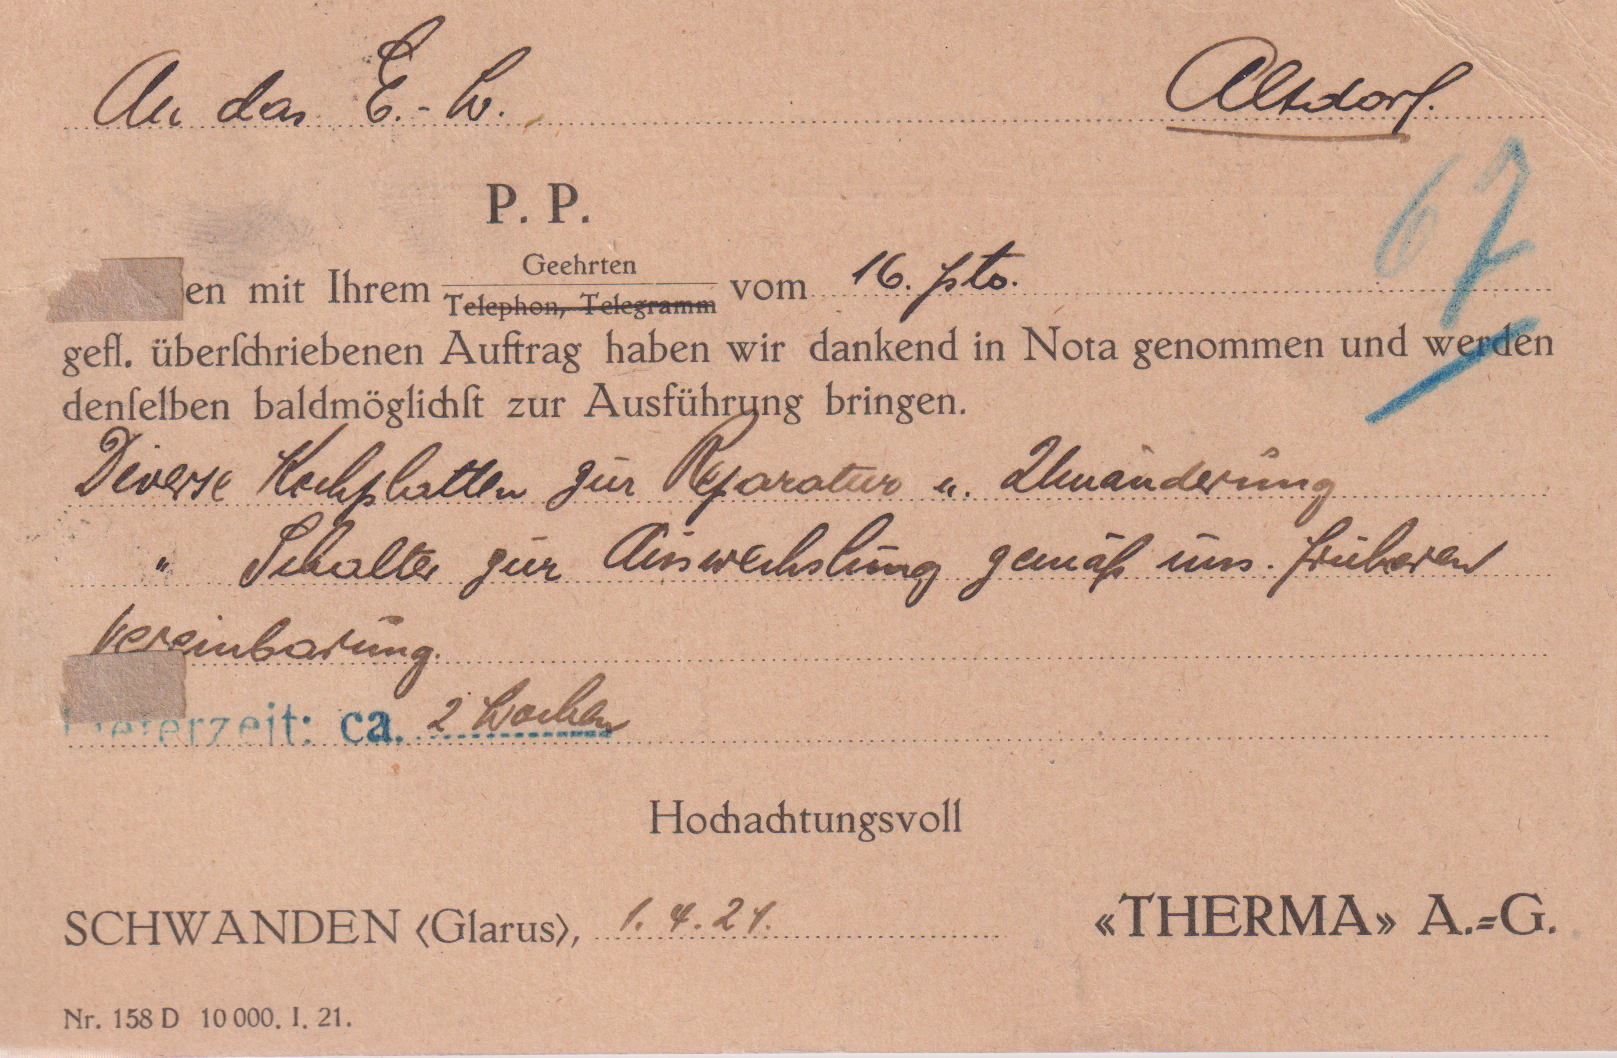 An das E.-W. Altdorf.
67
P. P.
en mit Ihrem Geehrten vom 16. psto.
Telephon, Telegramm
gefl. überschriebenen Auftrag haben wir dankend in Nota genommen und werden
denselben baldmöglichst zur Ausführung bringen.
Diverse Kochplatten zur Reparatur u. Umänderung
" Schalter zur Auswechslung gemäß uns. früheren
Vereinbarung.
Lieferzeit: ca. 2 Wochen
Hochachtungsvoll
SCHWANDEN (Glarus), 1. 4. 21. «THERMA» A.=G.
Nr. 158 D 10 000. I. 21.